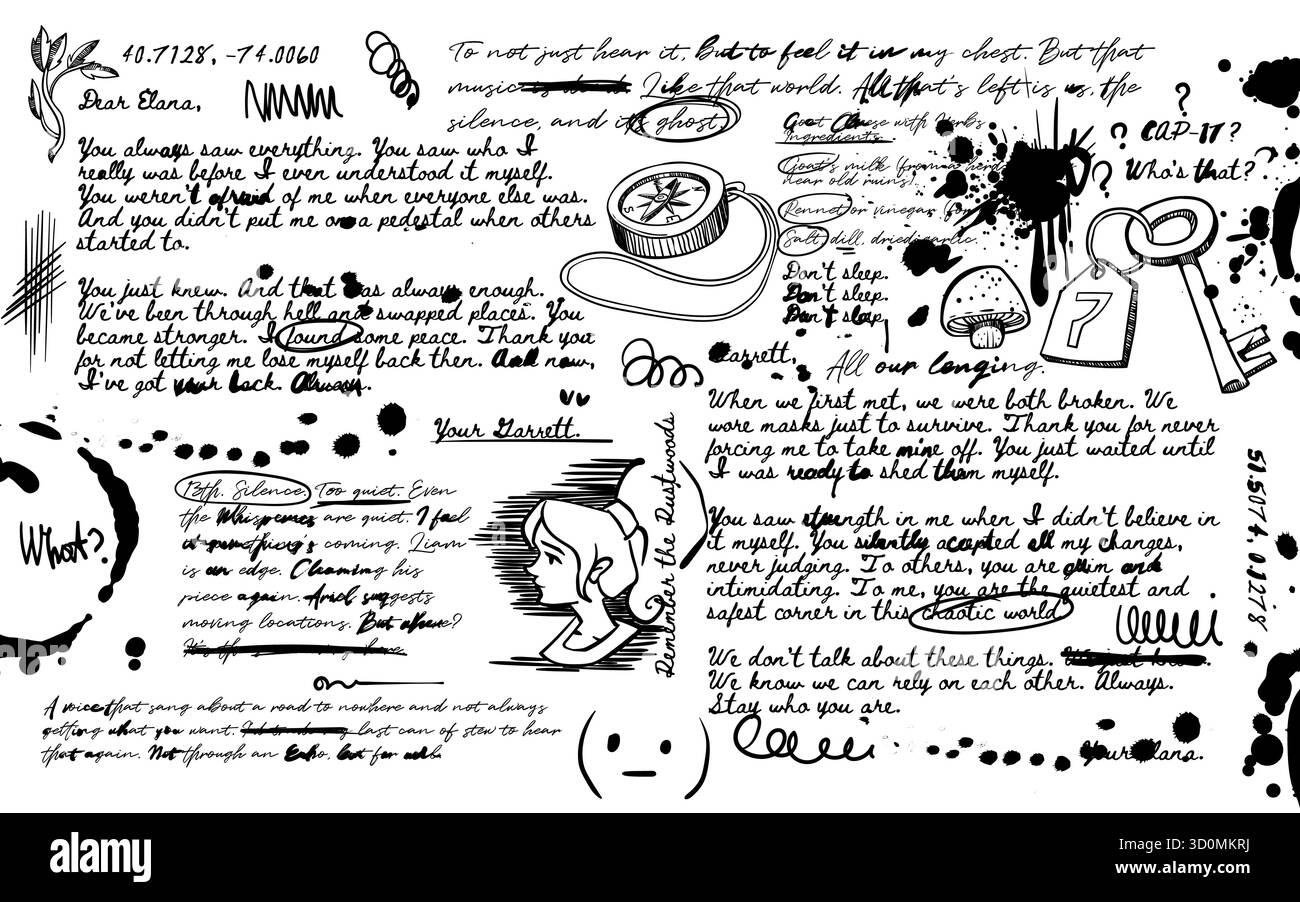 40.7128, -74.0060
Dear Elana,
You always saw everything. You saw who I
really was before I even understood it myself.
You weren't afraid of me when everyone else was.
And you didn't put me on a pedestal when others
started to.
You just knew. And that was always enough.
We've been through hell and swapped places. You
became stronger. I found some peace. Thank you
for not letting me lose myself back then. And now,
I've got your back. Always.
Your Garrett.
To not just hear it, But to feel it in my chest. But that
music Like that world. All that's left is us, the
silence, and its ghost
Goat Cheese with Herbs
Ingredients.
Goat's milk (from a herd
near old ruins)
Rennet or vinegar
Salt, dill, dried garlic.
Don't sleep.
Don't sleep.
Don't sleep.
?
? CAP-17?
? Who's that?
7
Garrett,
All our longing.
When we first met, we were both broken. We
wore masks just to survive. Thank you for never
forcing me to take mine off. You just waited until
I was ready to shed them myself.
You saw strength in me when I didn't believe in
it myself. You silently accepted all my changes,
never judging. To others, you are grim and
intimidating. To me, you are the quietest and
safest corner in this chaotic world
We don't talk about these things.
We know we can rely on each other. Always.
Stay who you are.
Your Elana.
51.5074, 0.1278
Remember the Rustwoods
What?
Silence. Too quiet. Even
the Whisperers are quiet. I feel
something's coming. Liam
is on edge. Cleaning his
piece again. Ariel suggests
moving locations. But where?
A voice that sang about a road to nowhere and not always
getting what you want. last can of stew to hear
that again. Not through an Echo, but for
alamy
Image ID: 3D0MKRJ
www.alamy.com